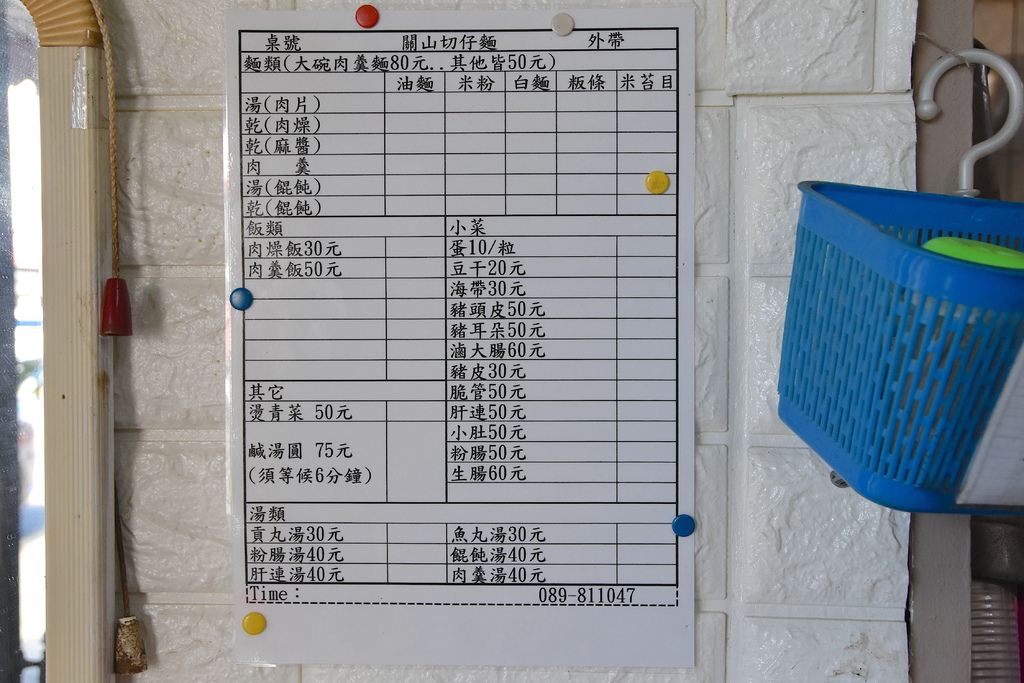 桌號 關山切仔麵 外帶
麵類(大碗肉羹麵80元..其他皆50元)
油麵 米粉 白麵 粄條 米苔目
湯(肉片)
乾(肉燥)
乾(麻醬)
肉 羹
湯(餛飩)
乾(餛飩)
飯類 小菜
肉燥飯30元 蛋10/粒
肉羹飯50元 豆干20元
海帶30元
豬頭皮50元
豬耳朵50元
滷大腸60元
豬皮30元
其它 脆管50元
燙青菜 50元 肝連50元
小肚50元
鹹湯圓 75元 粉腸50元
(須等候6分鐘) 生腸60元
湯類
貢丸湯30元 魚丸湯30元
粉腸湯40元 餛飩湯40元
肝連湯40元 肉羹湯40元
Time： 089-811047